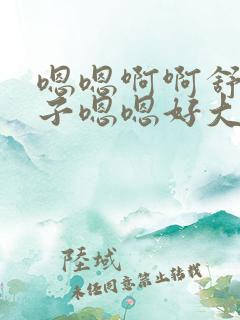 嗯嗯啊啊舒
子嗯嗯好大
陸域
未经同意禁止转载